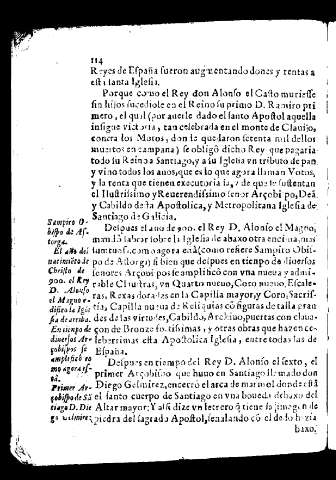 114
Reyes de España fueron augmentando dones y rentas a
esta santa Iglesia.
Porque como el Rey don Alonso el Casto muriesse
sin hijos sucediole en el Reino su primo D. Ramiro pri
mero, el qual (por auerle dado el santo Apostol aquella
insigne victoria, tan celebrada en el monte de Clauijo,
contra los Moros, don la quedaron setenta mil dellos
muertos en campaña) se obligò dicho Rey que pagaria
todo su Reino a Santiago, y a su Iglesia vn tributo de pan,
y vino todos los anos, que es lo que agora llaman Votos,
y la renta que tienen executoria
el Ilustrissimo y Reuerendissimo señor Arçobispo, Deã,
y Cabildo de la Apostolica, y Metropolitana Iglesia de
Santiago de Galicia.
Despues el año de 900. el Rey D. Alonso el Magno,
mandò labrar sobre la Iglesia de abaxo otra encima, mas
suntuosa, como agora està (como refiere Sampiro Obis-
po de Astorga) si bien que despues en tiempo de diuersos
señores Arçobispos se amplificò con vna nueua y admi-
rable Claustra, vn Quarto nueuo, Coro nueuo, Escale-
ras, Rexas doradas en la Capilla mayor, y Coro, Sacrif-
tia, Capilla nueua de Reliquias cõ figuras de talla gran
des de las virtudes, Cabildo, Archiuo, puertas con claua-
çon de Bronze fortissimas, y otras obras que hazen ce-
leberrima esta Apostolica Iglesia, entre todas las de
España.
Despues en tiempo del Rey D. Alonso el sexto, el
primer Arçobispo que huuo en Santiago llamado don
Diego Gelmirez, encerrò el arca de marmol donde està
el santo cuerpo de Santiago en vna boueda debaxo del
Altar mayor: y alsi dize vn letrero q̃ tiene la imagen de
piedra del sagrado Apostol, señalando cõ el dedo hazia
baxo,
Sampiro O-
bispo de As-
torga.
El año del
nacimiēto de
Christo de
900. el Rey
D. Alonso
el Magno e-
dificò la Igle
sia de arriba.
En tiempo de
diuersos Ar-
çobispos se
amplificò co
mo agora es-
tà.
Primer Ar-
çobispo de Sã
tiago D. Die
go Gelmirez.